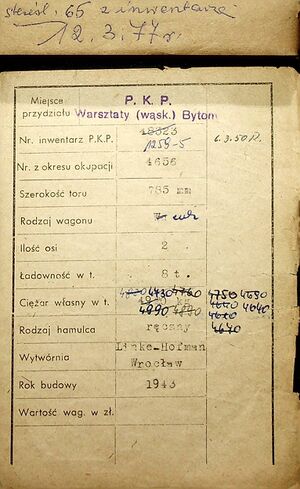 z inwentarza
12.3.77 r.
Miejsce przydziału
P. K. P.
Warsztaty (wąsk.) Bytom
Nr. inwentarz P.K.P. 18323
1259-5 6.3.50
Nr. z okresu okupacji 4656
Szerokość toru 785 mm
Rodzaj wagonu
Ilość osi 2
Ładowność w t. 8 t.
Ciężar własny w t. 4730 4760 4750 4690
4990 4890 4640
4640
Rodzaj hamulca ręczny
Wytwórnia Linke-Hofman
Wrocław
Rok budowy 1943
Wartość wag. w zł.